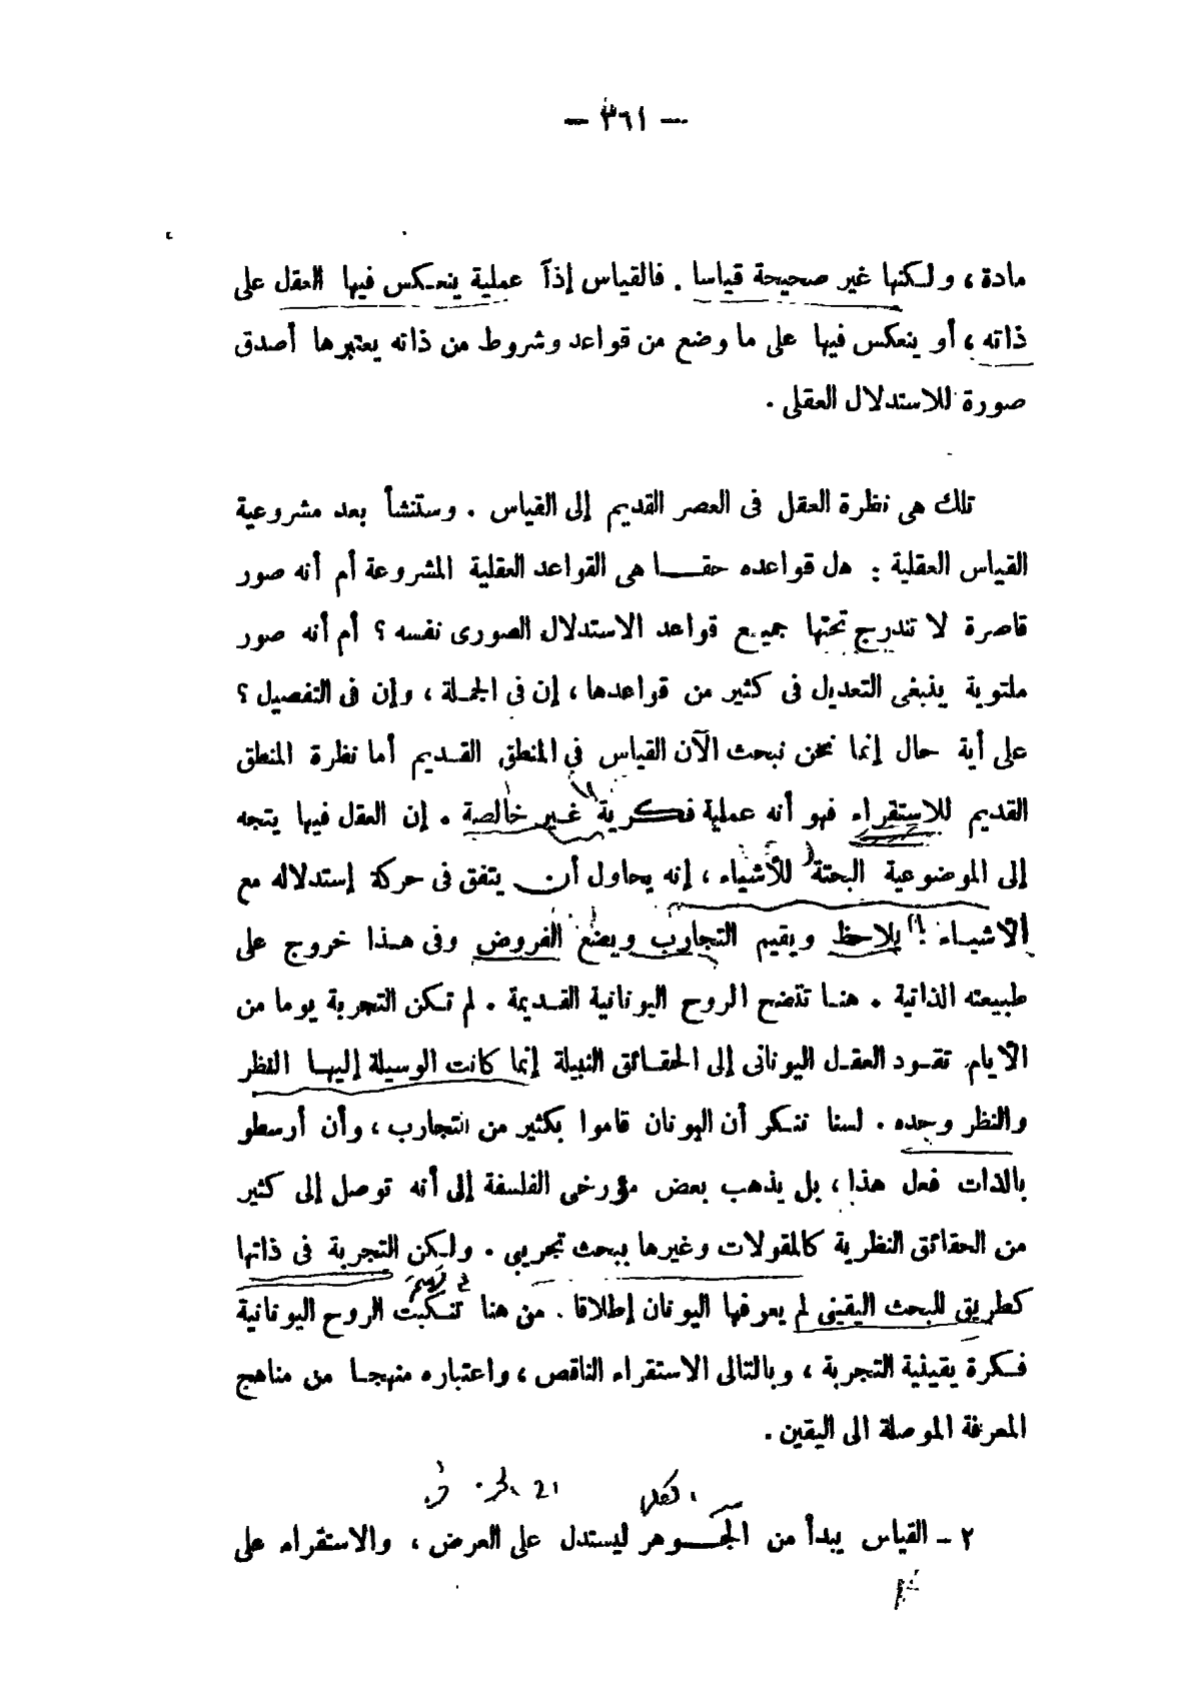 — ٣٦١ —
مادة ، ولكنها غير صحيحة قياسا . فالقياس إذاً عملية ينعكس فيها العقل على
ذاته ، أو ينعكس فيها على ما وضع من قواعد وشروط من ذاته يعتبرها أصدق
صورة للاستدلال العقلى .
تلك هى نظرة العقل فى العصر القديم إلى القياس . وستنشأ بعد مشروعية
القياس العقلية : هل قواعده حقا هى القواعد العقلية المشروعة أم أنه صور
قاصرة لا تندرج تحتها جميع قواعد الاستدلال الصورى نفسه ؟ أم أنه صور
ملتوية ينبغى التعديل فى كثير من قواعدها ، إن فى الجملة ، وإن فى التفصيل ؟
على أية حال إنما نحن نبحث الآن القياس في المنطق القديم أما نظرة المنطق
القديم للاستقراء فهو أنه عملية فكرية غير خالصة . إن العقل فيها يتجه
إلى الموضوعية البحتة للأشياء ، إنه يحاول أن يتفق فى حركة إستدلاله مع
الأشياء : يلاحظ ويقيم التجارب ويضع الفروض وفى هذا خروج على
طبيعته الذاتية . هنا تتضح الروح اليونانية القديمة . لم تكن التجربة يوما من
الأيام تقود العقل اليونانى إلى الحقائق النبيلة إنما كانت الوسيلة إليها النظر
والنظر وحده . لسنا ننكر أن اليونان قاموا بكثير من التجارب ، وأن أرسطو
بالذات فعل هذا ، بل يذهب بعض مؤرخى الفلسفة إلى أنه توصل إلى كثير
من الحقائق النظرية كالمقولات وغيرها ببحث تجريبى . ولكن التجربة فى ذاتها
كطريق للبحث اليقينى لم يعرفها اليونان إطلاقا . من هنا تنكبت الروح اليونانية
فكرة يقينية التجربة ، وبالتالى الاستقراء الناقص ، واعتباره منهجا من مناهج
المعرفة الموصلة الى اليقين .
٢ – القياس يبدأ من الجوهر ليستدل على العرض ، والاستقراء على